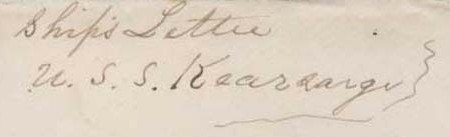 Ship's Letter
U. S. S. Kearsarge }